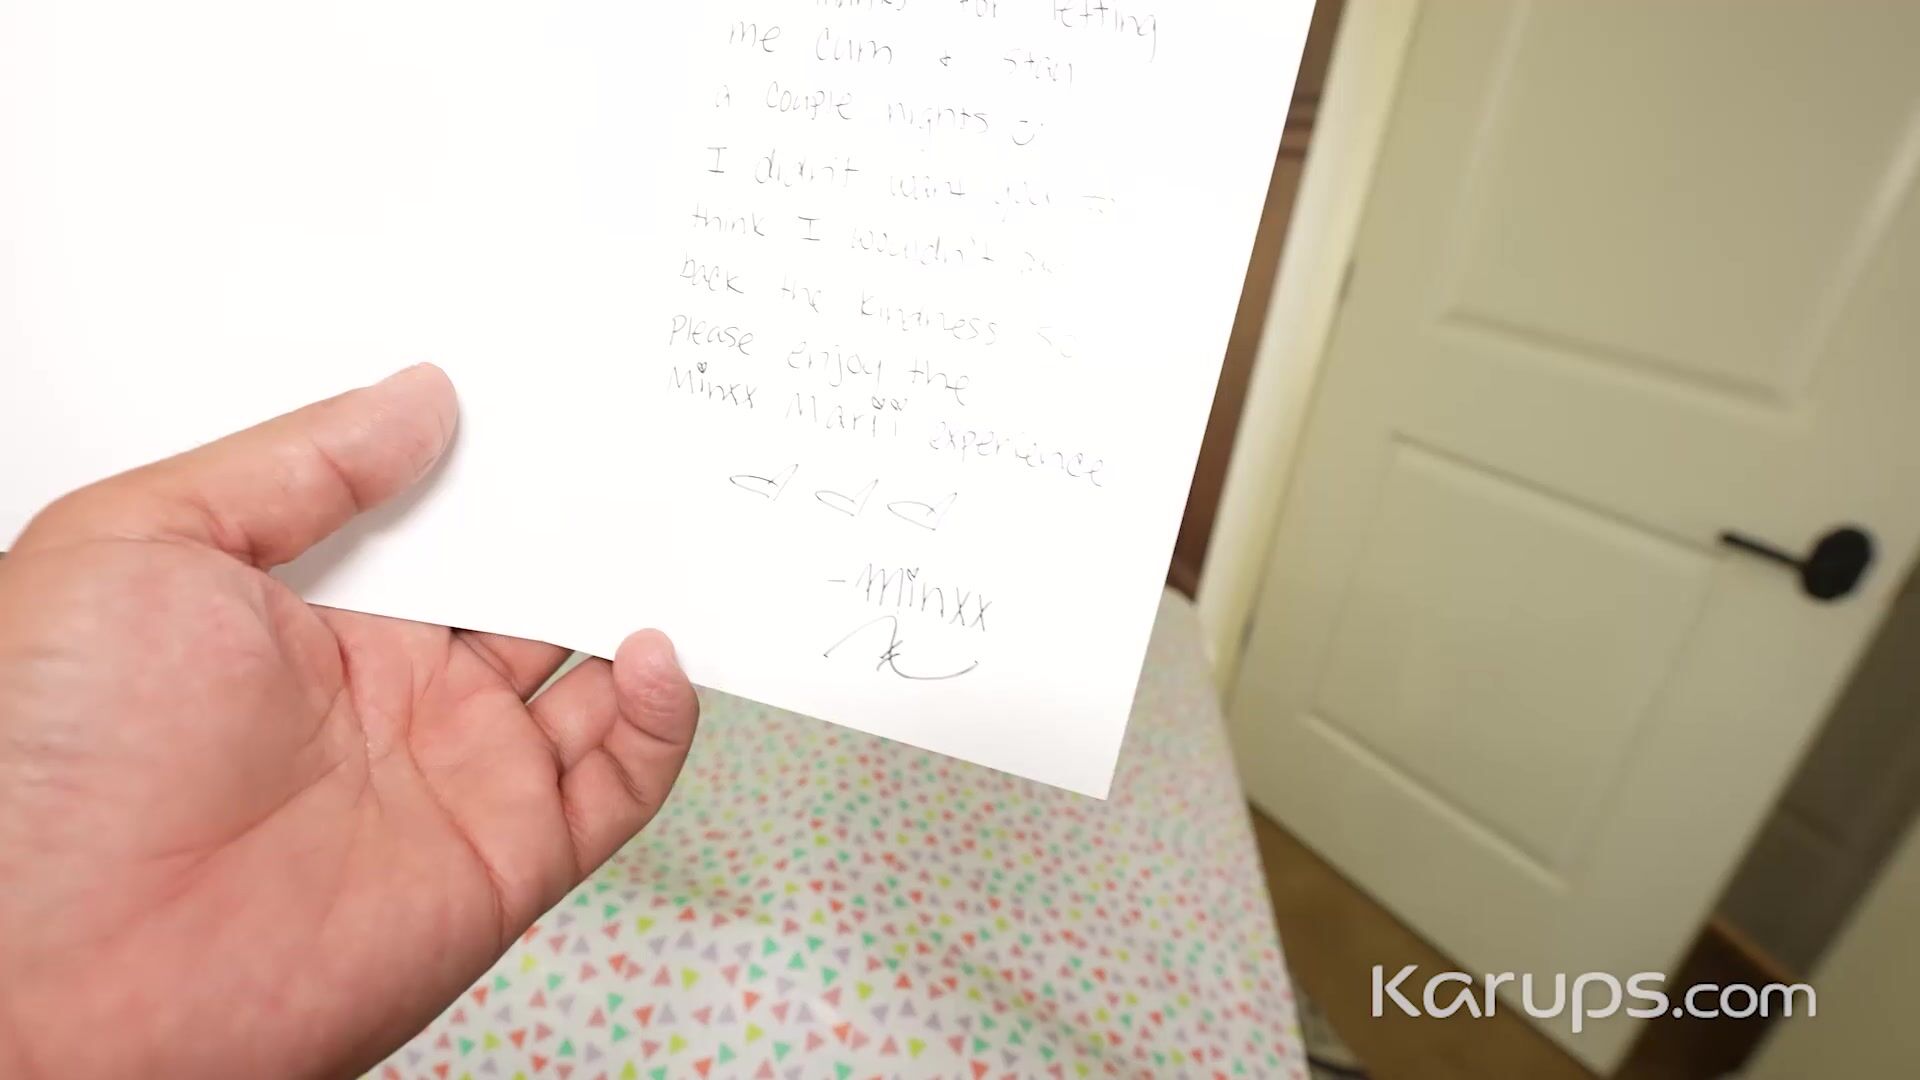 for letting
me cum & stay
a couple nights
I didn't want you to
think I wouldn't
back the kindness so
please enjoy the
Minxx Marii experience
-Minxx
Karups.com